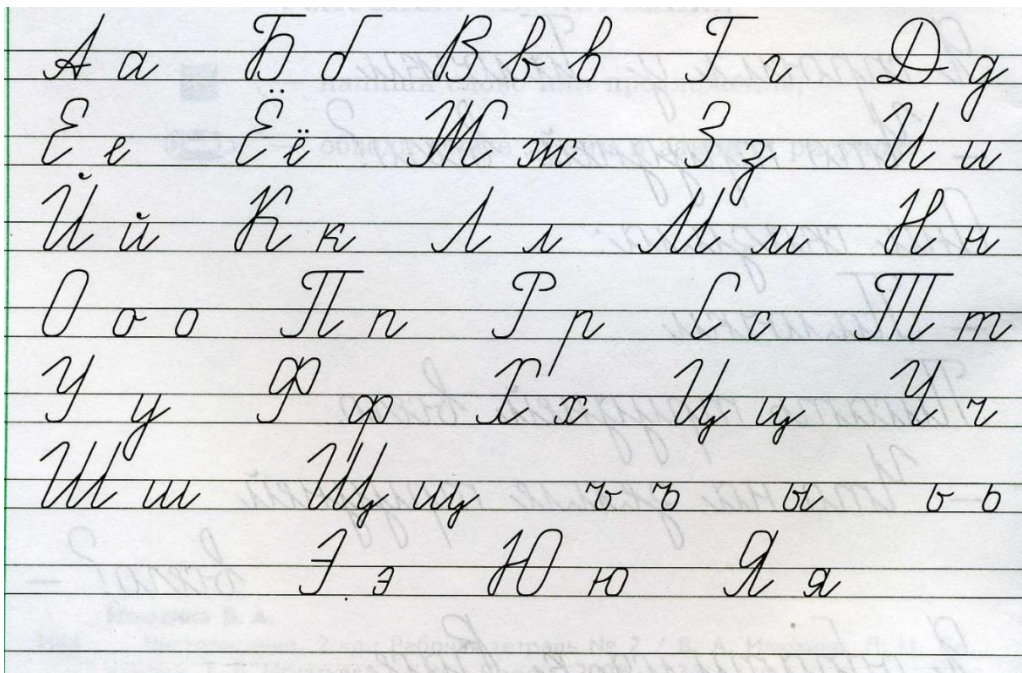 А а Б б В в в Г г Д д
Е е Ё ё Ж ж З з И и
Й й К к Л л М м Н н
О о о П п Р р С с Т т
У у Ф ф Х х Ц ц Ч ч
Ш ш Щ щ ъ ъ ы ь ь
Э э Ю ю Я я